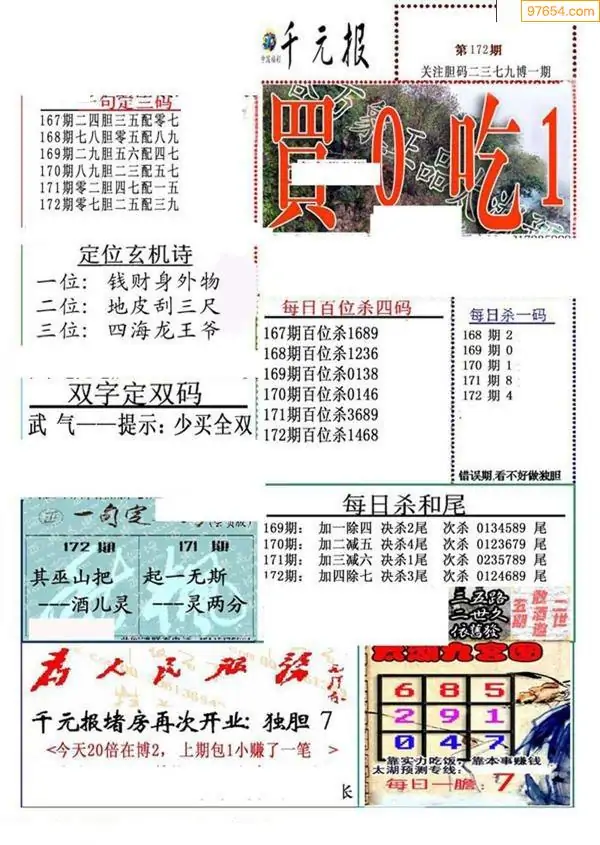 97654.com
千元报
第172期
关注胆码二三七九博一期
一句定三码
167期二四胆三五配零七
168期七八胆零五配八九
169期二九胆五六配四七
170期八九胆二三配五七
171期零二胆四七配一五
172期零七胆二五配三九
買0吃1
定位玄机诗
一位：钱财身外物
二位：地皮刮三尺
三位：四海龙王爷
每日百位杀四码
167期百位杀1689
168期百位杀1236
169期百位杀0138
170期百位杀0146
171期百位杀3689
172期百位杀1468
每日杀一码
168 期 2
169 期 0
170 期 1
171 期 8
172 期 4
错误期，看不好做独胆
双字定双码
武 气——提示：少买全双
每日杀和尾
169期： 加一除四 决杀2尾 次杀 0134589 尾
170期： 加二减五 决杀4尾 次杀 0123679 尾
171期： 加三减六 决杀1尾 次杀 0235789 尾
172期： 加四除七 决杀3尾 次杀 0124689 尾
一句定
172 期
其巫山把
---酒儿灵
171 期
起一无斯
---灵两分
三五路
二世久
依旧发
散酒邀
二世
五期
为人民服务
千元报堵房再次开业：独胆 7
<今天20倍在博2，上期包1小赚了一笔 >
长
太湖九宫图
6 8 5
2 9 1
0 4 7
靠实力吃饭，靠本事赚钱
太湖预测专线：
每日一胆：7